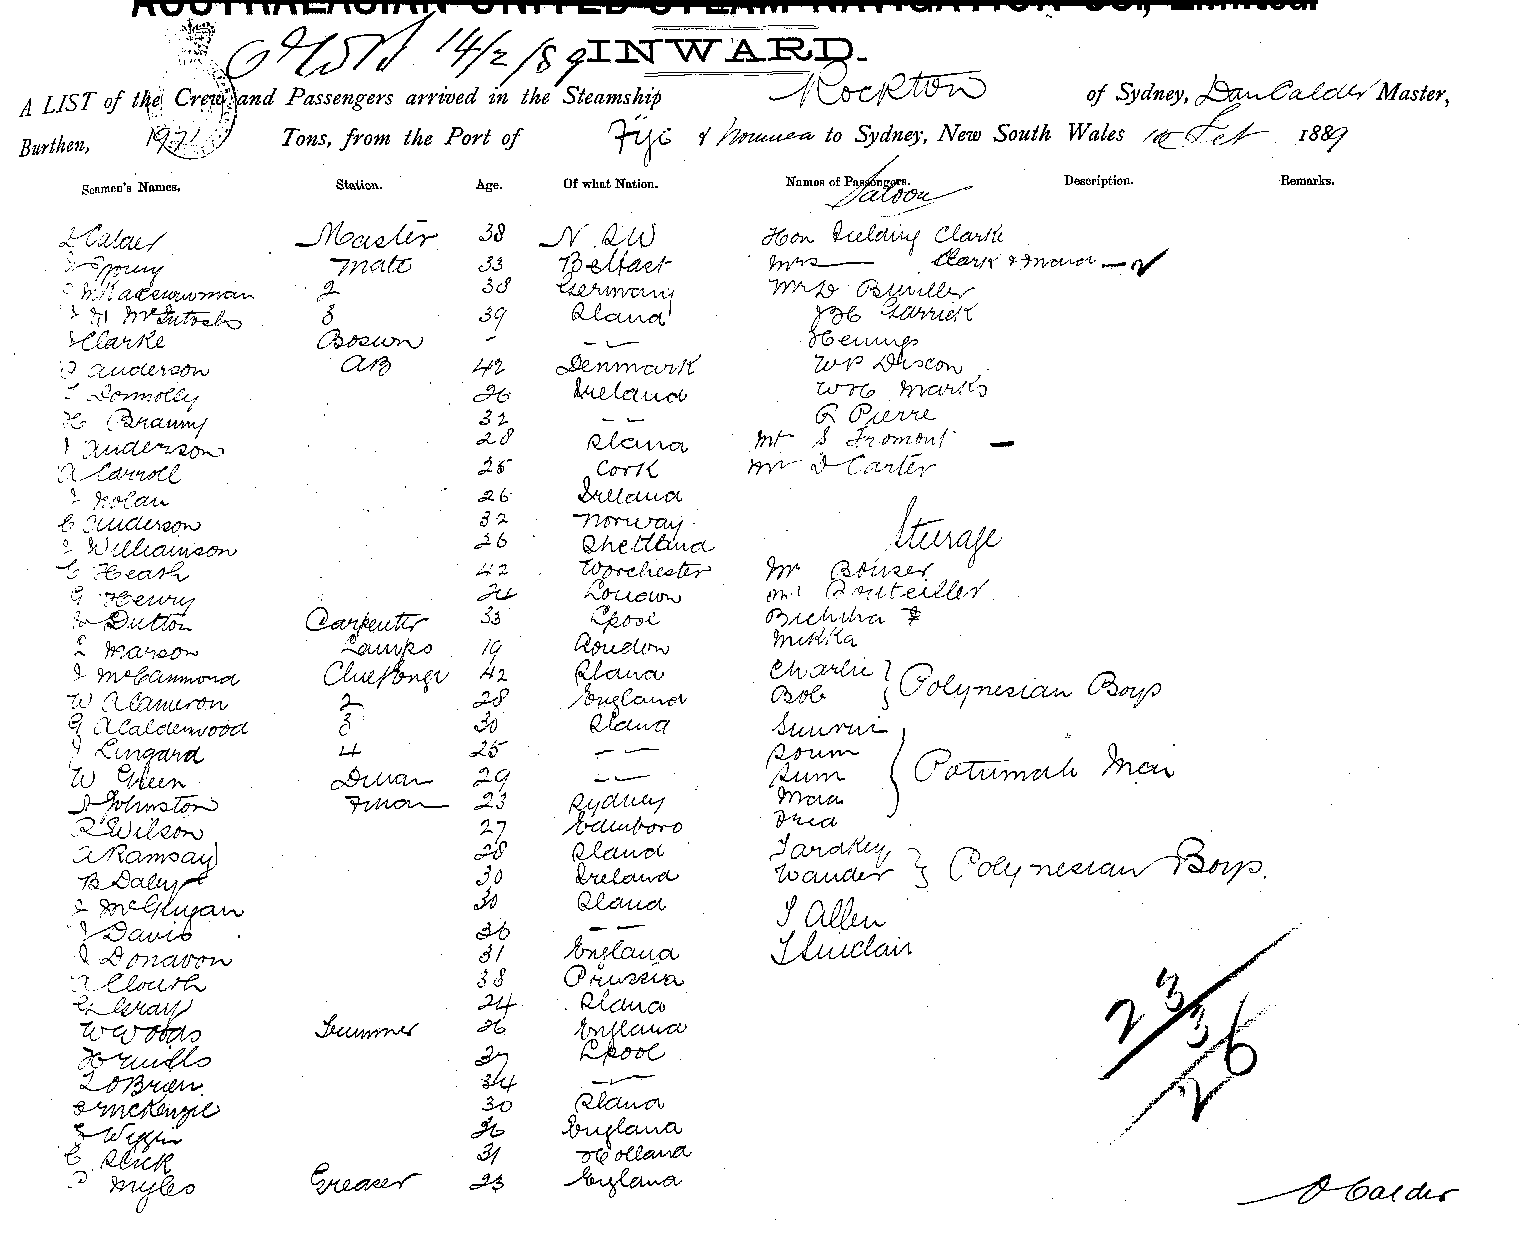 AUSTRALASIAN UNITED STEAM NAVIGATION Co., Limited.
14/2/89 INWARD.
A LIST of the Crew and Passengers arrived in the Steamship Rockton of Sydney, Dan Calder Master,
Burthen, 1971 Tons, from the Port of Fiji & Noumea to Sydney, New South Wales Feb 1889
Seamen's Names. Station. Age. Of what Nation. Names of Passengers. Description. Remarks.
Saloon
D Calder Master 38 N.S.W Hon Fielding Clarke
Mate 33 Belfast Mrs — Clark & Maid
2 38 Germany Mr D
McIntosh 3 39 Sland J B C Garrick
Clarke Bosun - — — Hennings
Anderson AB 42 Denmark W P Dixon
Donnolly 26 Ireland W H Marks
H 32 — — P Pierre
Anderson 28 Sland Mr S Fromont —
A Carroll 25 Cork Mr D Carter
J Nolan 26 Ireland
C Anderson 32 Norway
Sturage
J Williamson 26 Shettland
C Heath 42 Worchester Mr Bouser
G Henry 24 London Bouteiller
Dutton Carpenter 33 Lpool
Marson Lamps 19 London Mikka
J McCammond 42 Sland Charlie
W A Cameron 2 28 England Bob } Polynesian Boys
G A Caldenwood 3 30 Sland
J Lingard 4 25 — — Soum
W Green 29 — — Sum } Potumah Men
Johnston Fman 23 Sydney
R Wilson 27 Edinboro
A Ramsay 28 Sland Tardkey
B Daley 30 Ireland Wander } Polynesian Boys.
J McGuigan 30 Sland
J Davis 36 — — J Allen
J Donavon 31 England J Sinclair
A Clouth 38 Prussia
G Gray 24 Sland
W Woods Trimmer 26 England
H Mills 27 Lpool
O Brien 34 —
McKenzie 30 Sland
26 England
C Slick 31 Holland
Myles Greaser 23 England
23
3
26
D Calder